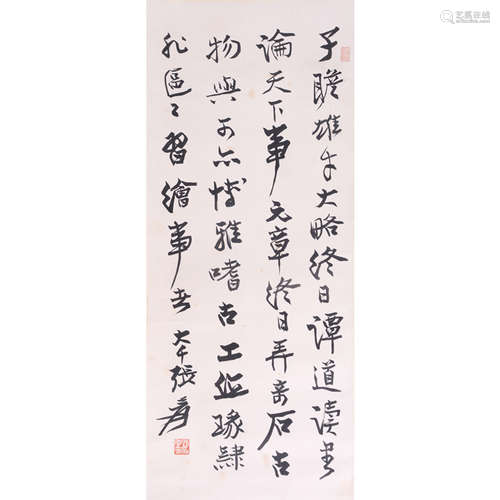 子瞻雄才大略終日譚道讀書
論天下事文章終日弄奇石古
物與可亦博雅嗜古工篆隸
非區區習繪事者 大千張爰